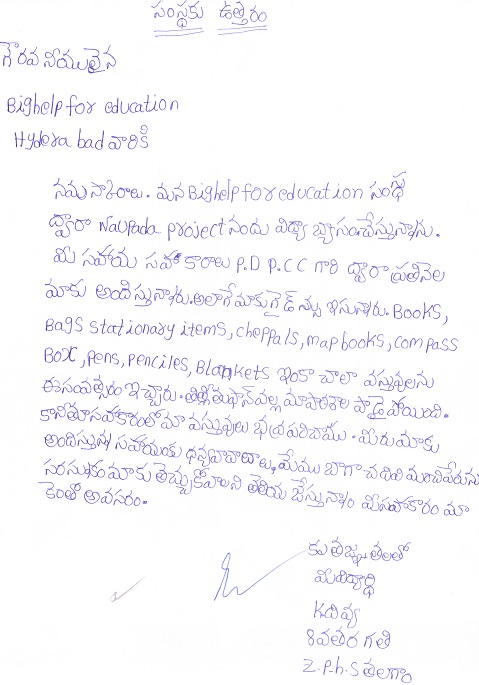 సంస్థకు ఉత్తరం
గౌరవనీయులైన
Bighelp for education
Hyderabad వారికి
నమస్కారాలు. మన Bighelp for education సంస్థ
ద్వారా Naupada project నందు విద్యాభ్యాసంచేస్తున్నాను.
మీ సహాయ సహకారాలు P.D P.CC గారి ద్వారా ప్రతినెల
మాకు అందిస్తున్నారు. అలాగే మాకు గైడ్ న్ను ఇస్తున్నారు. Books,
Bags stationary items, cheppals, map books, compass
Box, pens, penciles, Blankets ఇంకా చాలా వస్తువులను
ఈ సంవత్సరం ఇచ్చారు. తిత్లీ తుఫాన్ వల్ల మా పాఠశాల పాడైపోయింది.
కాని మీ సహకారంతో మా వస్తువులు భద్రపరిచాము. మీరు మాకు
అందిస్తున్న సహాయంకు ధన్యవాదాలు, మేము బాగా చదివి మంచిపేరును
సంస్థకు మాకు తెచ్చుకోవాలని తెలియ జేస్తున్నాం మీ సహకారం మా
కెంతో అవసరం.
కృతజ్ఞతలతో
మీ విద్యార్థి
K దివ్య
8వ తరగతి
Z.P.h.S తలగాం